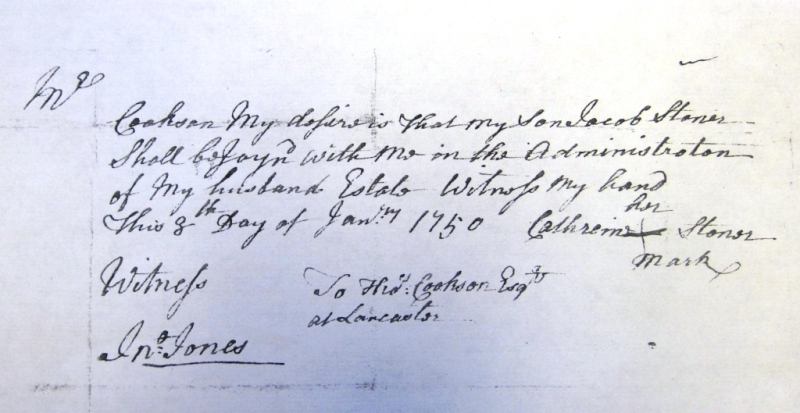 Mr
Cookson My desire is that my Son Jacob Stoner
Shall be Joyn'd with Me in the Administraton
of My husband Estate Witness My hand
This 8th Day of Janry 1750
her
Cathreine Stoner
mark
Witness
To Thos: Cookson Esqr
at Lancaster
Jno. Jones